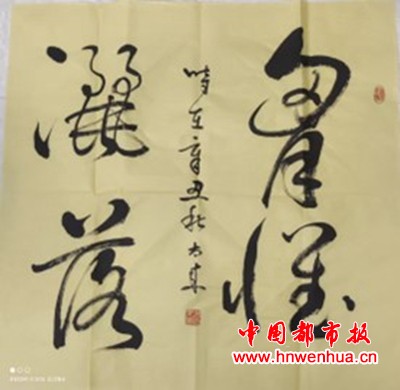 胷懷
灑落
時在辛丑秋
中國都市报
www.hnwenhua.cn